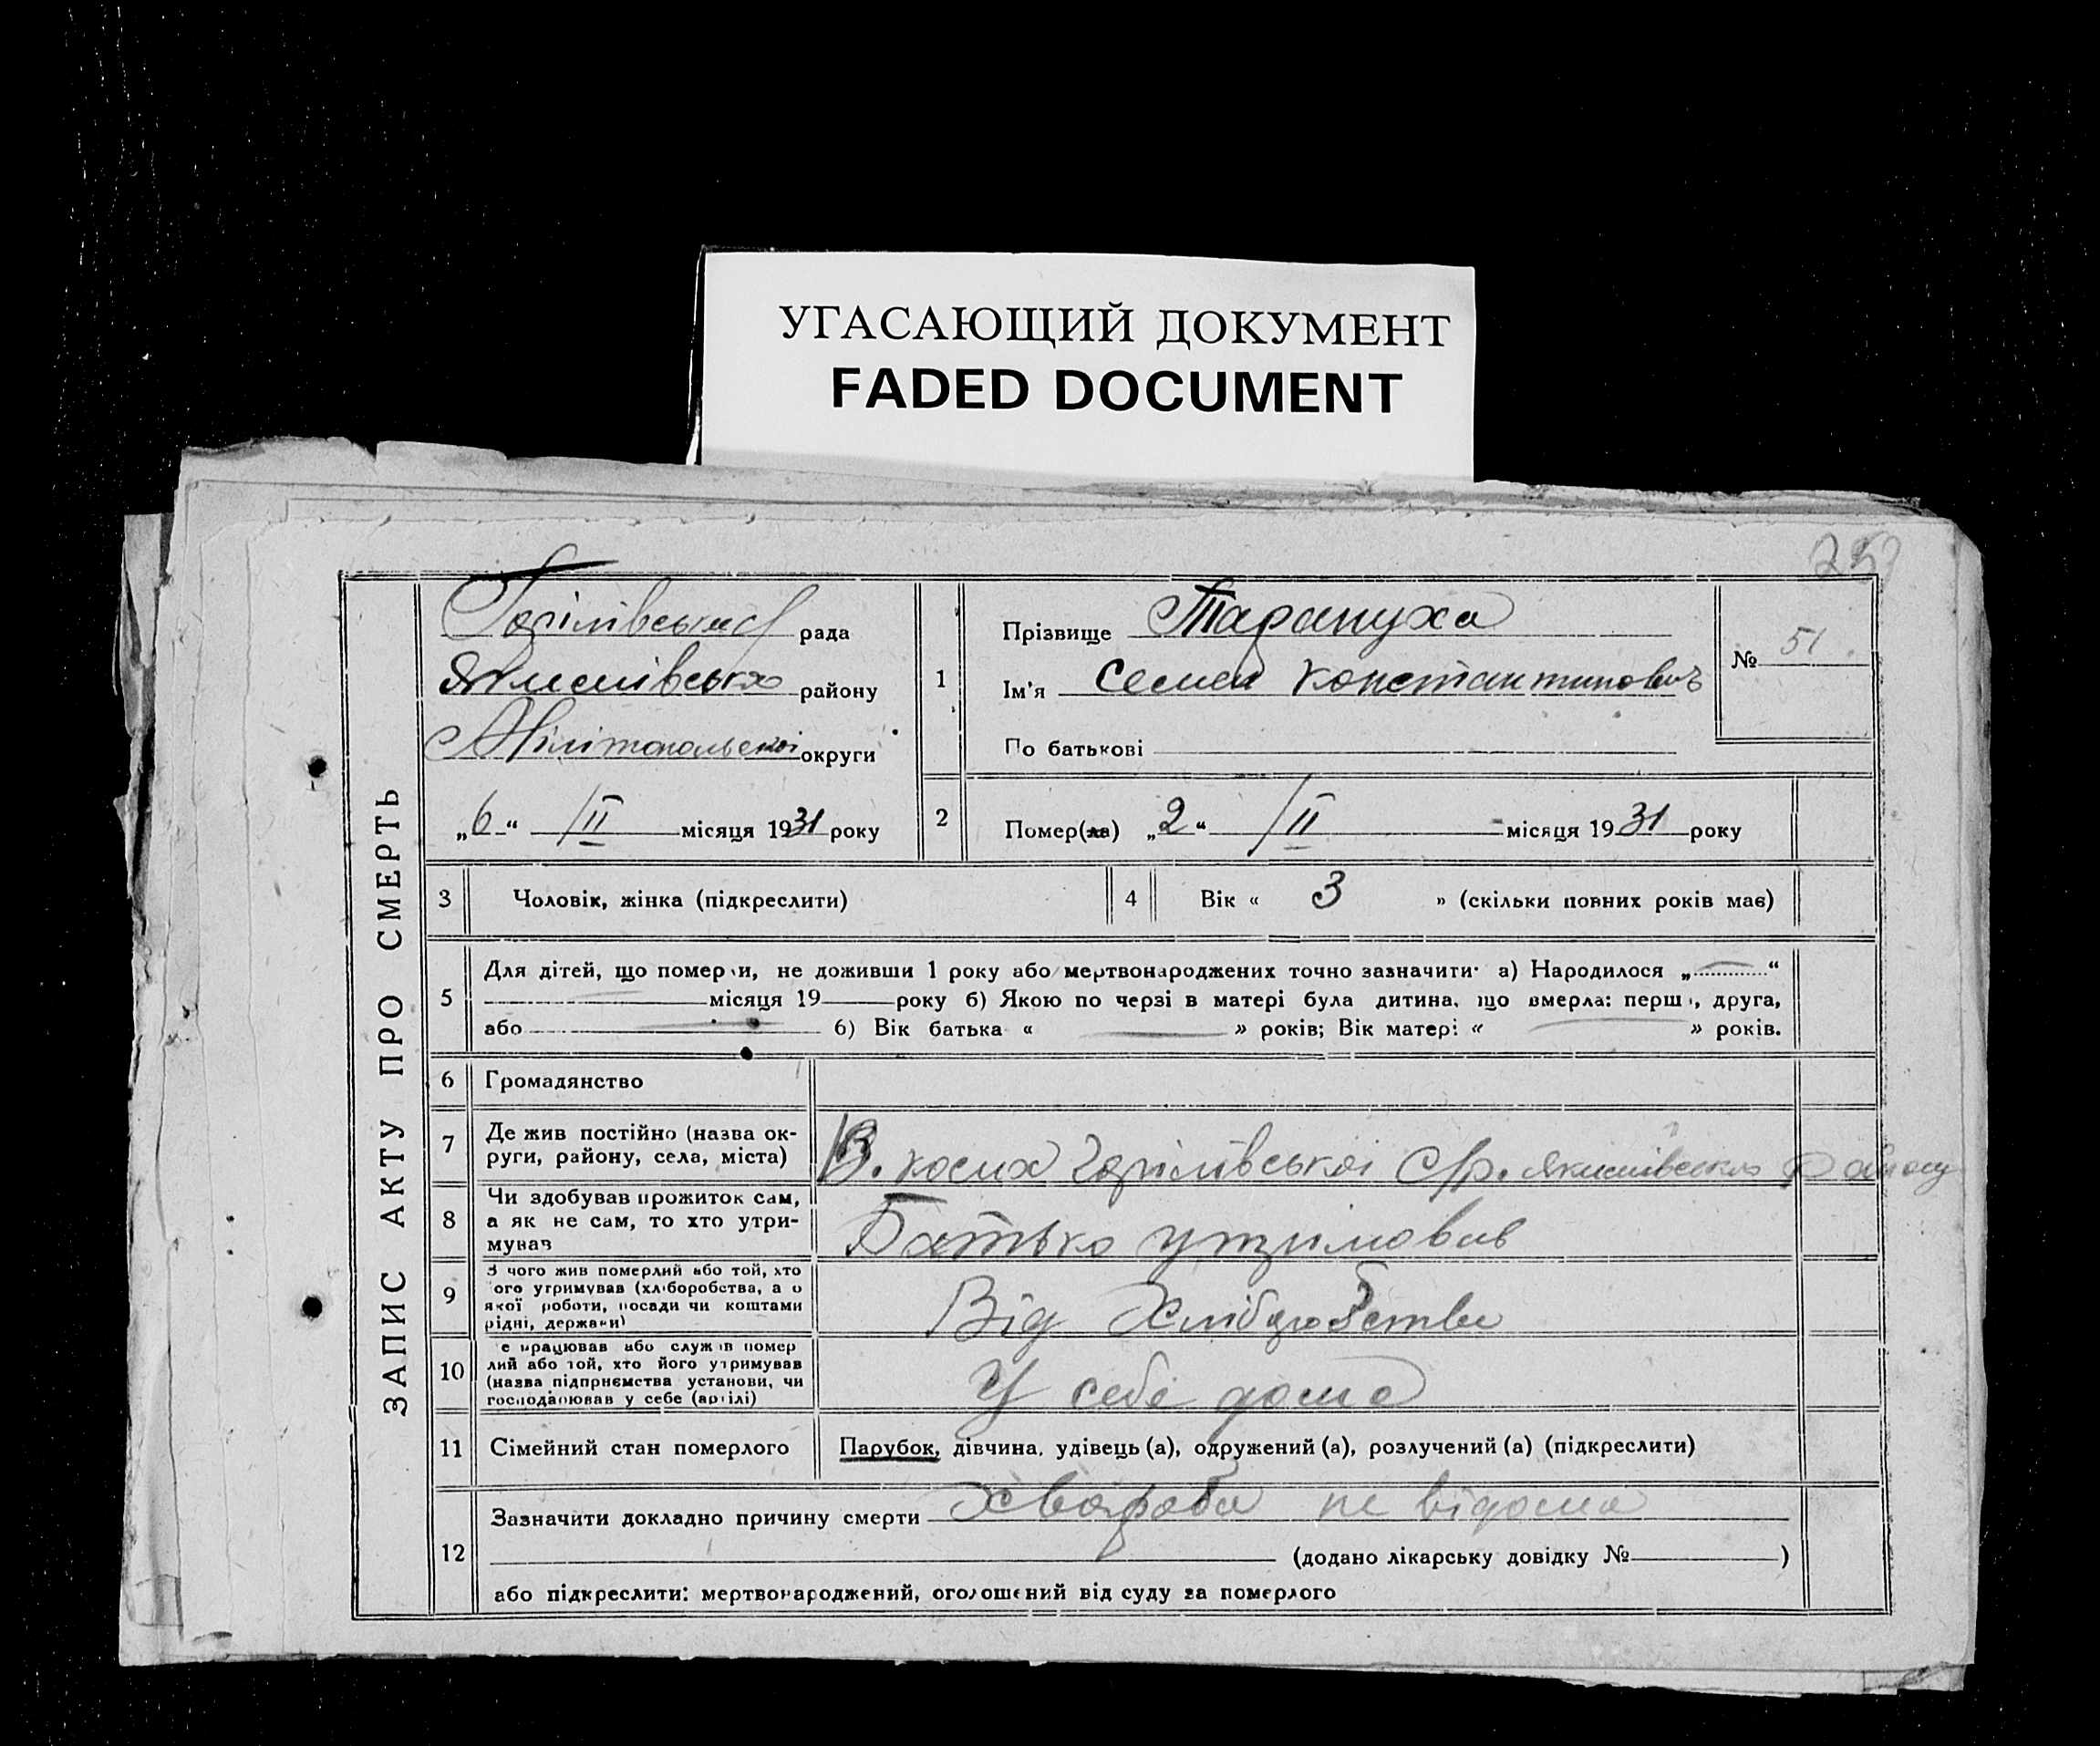 УГАСАЮЩИЙ ДОКУМЕНТ
FADED DOCUMENT
25
ЗАПИС АКТУ ПРО СМЕРТЬ
рада
району
Мілітопольскоі округи
„6“ /II місяця 1931 року
1
Прізвище Тарануха
Ім'я Семен Константиновичъ
По батькові
№ 51
2
Помер(ла) „2“ /II місяця 1931 року
3 Чоловік, жінка (підкреслити)
4 Вік « 3 » (скільки повних років має)
5
Для дітей, що померли, не доживши 1 року або мертвонароджених точно зазначити: а) Народилося „ “
місяця 19 року б) Якою по черзі в матері була дитина, що вмерла: перша, друга,
або 6) Вік батька « » років; Вік матері « » років.
6 Громадянство
7 Де жив постійно (назва ок-
руги, району, села, міста)
8 Чи здобував прожиток сам,
а як не сам, то хто утри-
мував
Батько утримовав
9 З чого жив померлий або той, хто
ого утримував (хліборобства, а о
якої роботи, посади чи коштами
рідні, держави)
Від Хліборобства
10 е працював або служив помер
лий або той, хто його утримував
(назва підприємства установи, чи
господарював у себе (артілі)
У себе дома
11 Сімейний стан померлого
Парубок, дівчина, удівець (а), одружений (а), розлучений (а) (підкреслити)
12
Зазначити докладно причину смерти Хвороба не відома
(додано лікарську довідку № )
або підкреслити: мертвонароджений, оголошений від суду за померлого